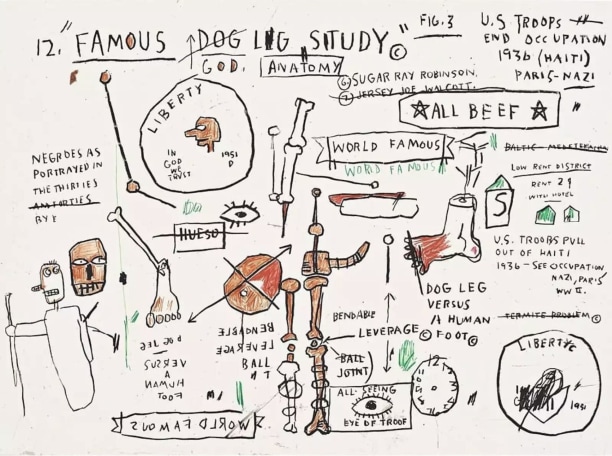 12. "FAMOUS DOG LEG STUDY" ©
GOD. ANATOMY
FIG. 3
U.S. TROOPS
END OCCUPATION
1936 (HAITI)
PARIS-NAZI
6. SUGAR RAY ROBINSON.
7. JERSEY JOE WALCOTT.
ALL BEEF
LIBERTY
IN
GOD
WE
TRUST
1951
D
WORLD FAMOUS
WORLD FAMOUS
LOW RENT DISTRICT
RENT 29
WITH HOTEL
S
NEGROES AS
PORTRAYED IN
THE THIRTIES
HUESO
U.S. TROOPS PULL
OUT OF HAITI
1936-SEE OCCUPATION
NAZI, PARIS
WW II.
DOG LEG
VERSUS
A HUMAN
© FOOT ©
DOG LEG
VERSUS
A
HUMAN
FOOT
BENDABLE
LEVERAGE
BALL
BENDABLE
LEVERAGE
BALL
JOINT
TERMITE PROBLEM ©
LIBERTY
1951
12
ALL-SEEING
EYE OF TROOF
WORLD FAMOUS